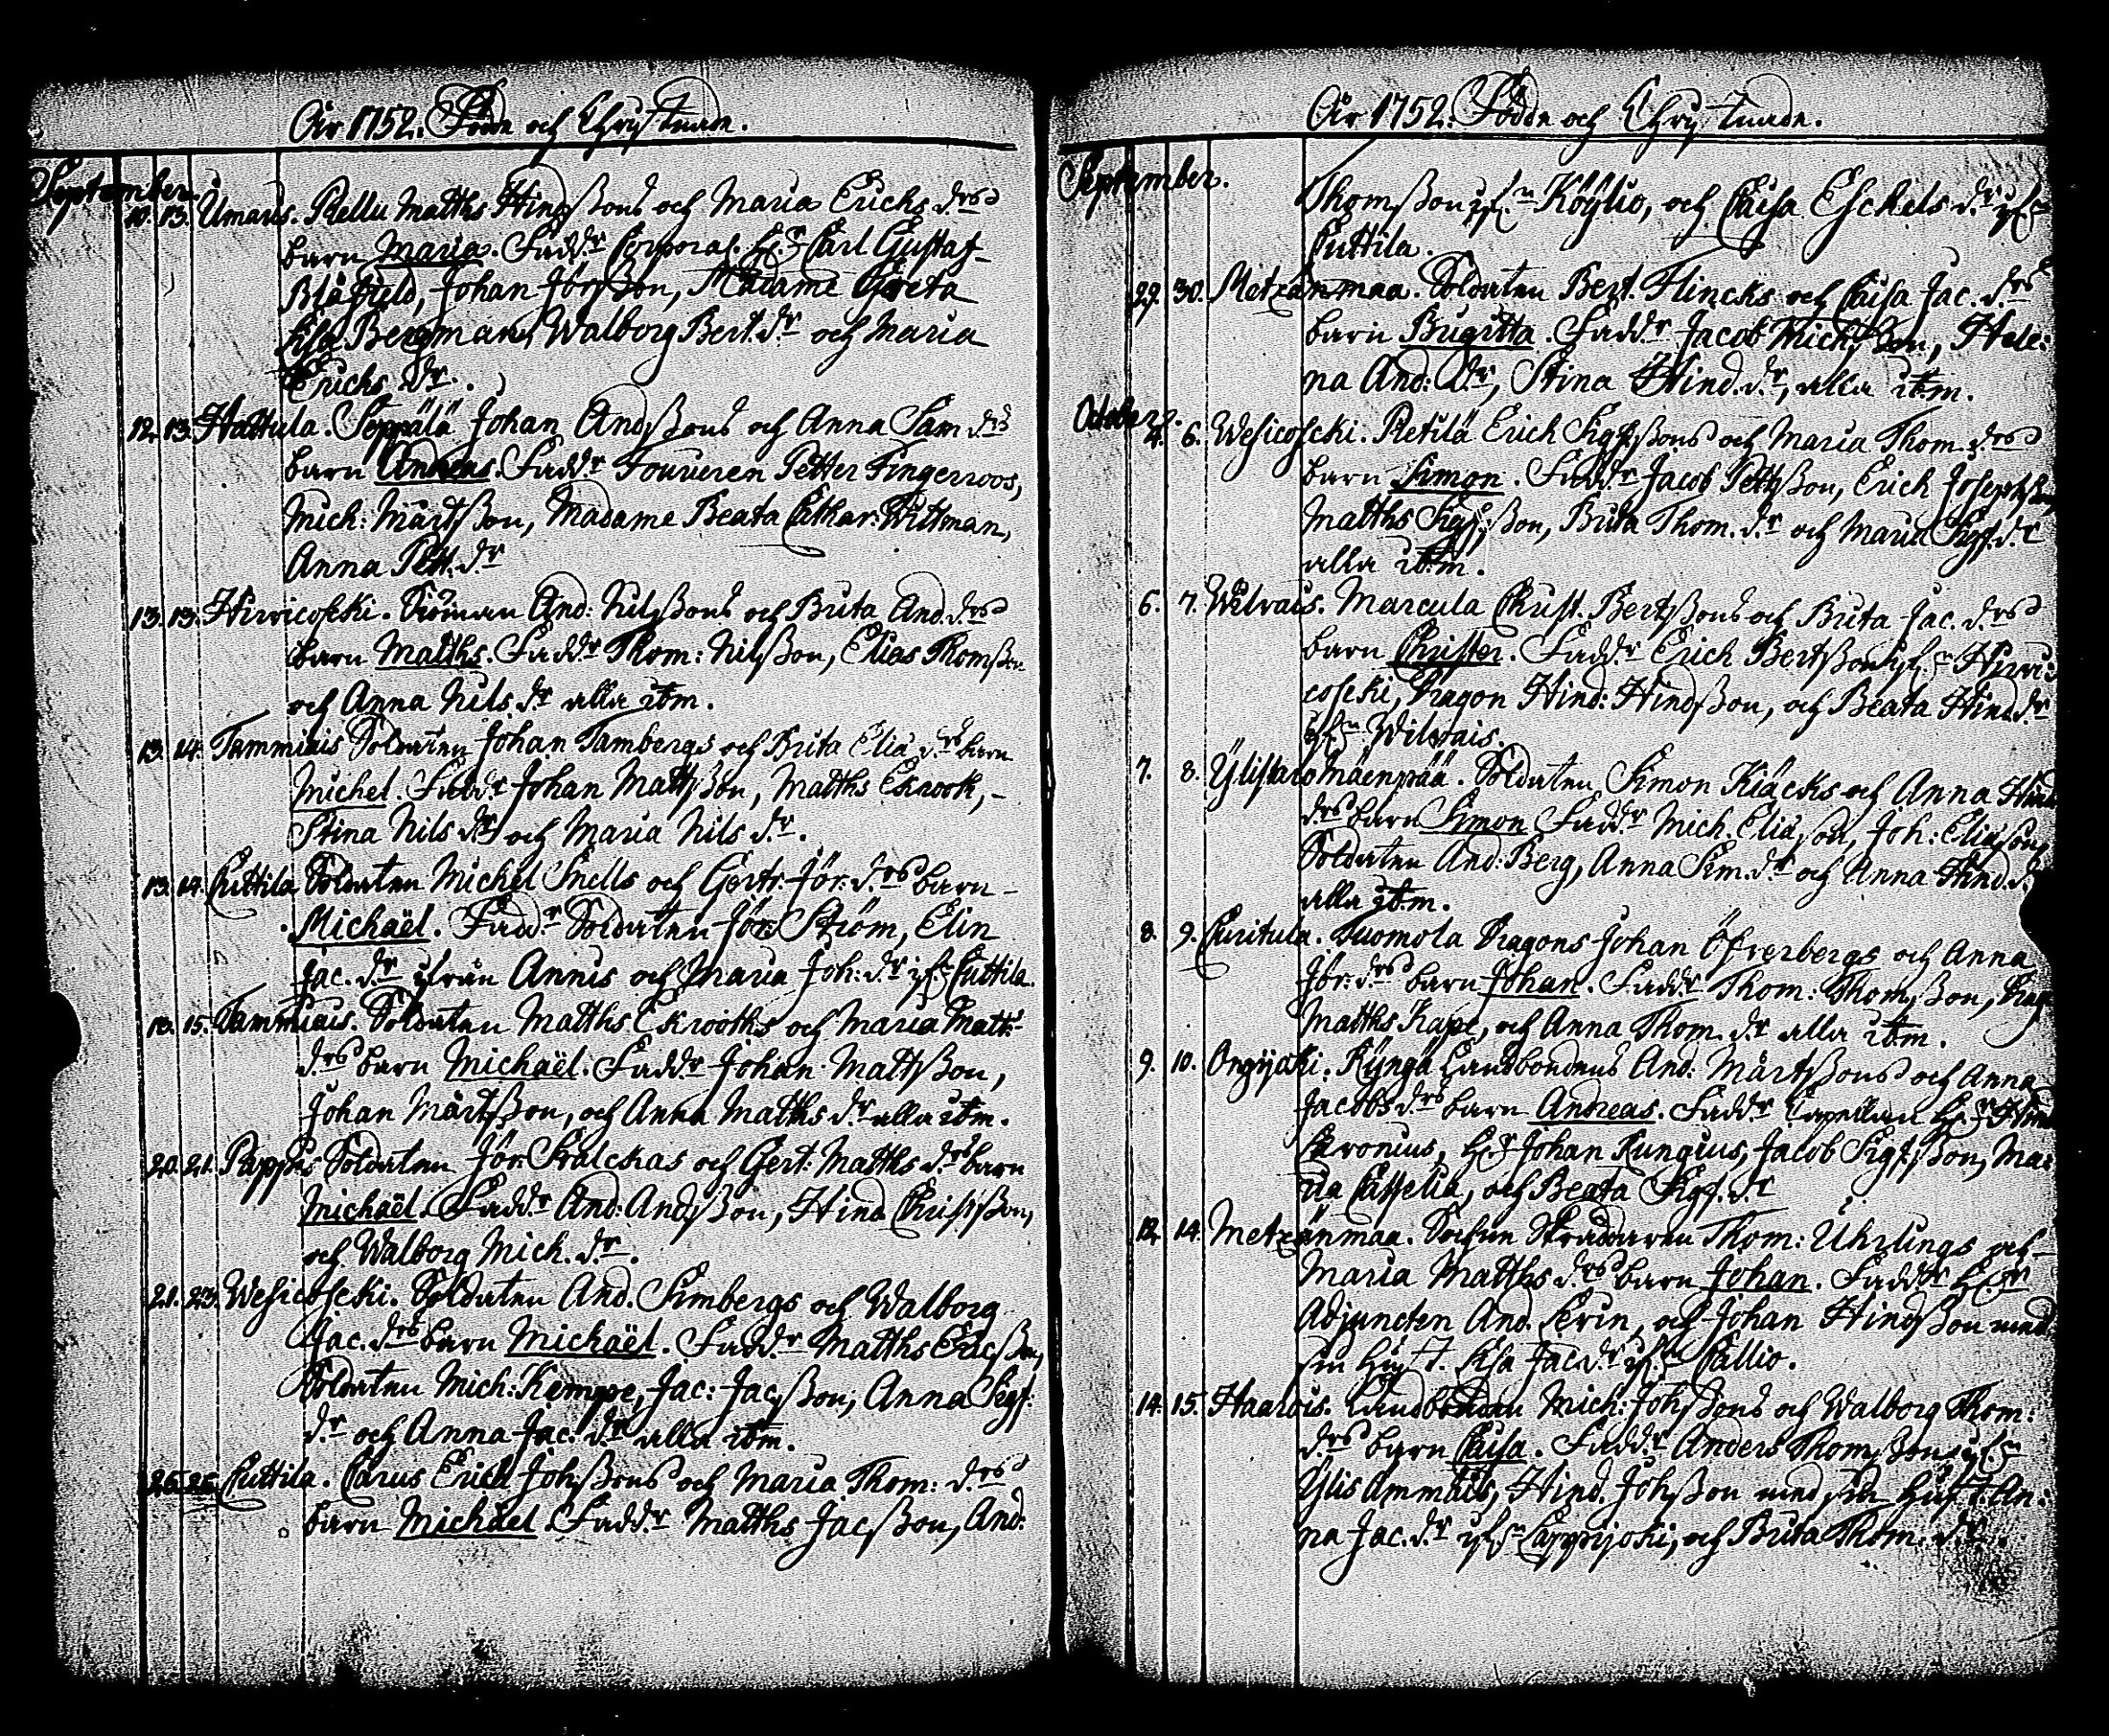 Åhr 1752. Födde och Chrystnade.
September
10. 13. Ümaris. Rellu Matths Hindsßons och Maria Erichs d:rs
barn Maria. Fadd:r Corporal. H:r Carl Gustaf
Blåfield, Johan Jörßon, Madame Greta
Lisa Bergman, Walborg Bert. d:r och Maria
Erichs d:r.
12. 13. Hattula. Seppälä Johan Andßons och Anna Sam d:rs
barn Andreas. Fadd:r Fouveren Petter Fingerroos,
Mich: Mårtßon, Madame Beata Cathar: Wittman,
Anna Pett. d:r
13. 13. Hirvicoscki. And: Nilsßons och Brita And. d:rs
barn Matths. Fadd:r Thom: Nilsßon, Elias Thomßon
och Anna Nils d:r alla ibm.
13. 14. Tammiais Soldaten Johan Tambergs och Brita Elia d:rs barn
Michel. Fadd:r Johan Mattsßon, Matths Ekrooth,
Stina Nils d:r och Maria Nils d:r.
13. 14. Cuttila Soldaten Michel Snells och Gertr. Jör. d:rs barn
Michaël. Fadd:r Soldaten Jör Ström, Elin
Jac. d:r ifrån Annis och Maria Joh: d:r if:n Cuttila.
10. 15. Tammiais. Soldaten Matths Ekrooths och Maria Matth:
d:rs barn Michaël. Fadd:r Johan Mattsßon,
Johan Mårtßon, och Anna Matths d:r alla ibm.
20. 21. Pappis Soldaten Jör. Skalckas och Gert: Matths d:rs barn
Michaël. Fadd:r And: Andsßon, Hind Christßon,
och Walborg Mich. d:r.
21. 23. Wesicoscki. Soldaten And. Simbergs och Walborg
Jac. d:rs barn Michaël. Fadd:r Matths Ericßon,
Soldaten Mich: Kempe, Jac: Jacsßon, Anna Sigf:
d:r och Anna Jac: d:r alla ibm.
26. 26. Cuttila. Carus Erich Johsßons och Maria Thom: d:rs
barn Michaël. Fadd:r Matths Jacsßon, And:
Åhr 1752. Födde och Chrystnade.
September.
Thomsßon if:n Köÿlio, och Caisa Eschels d:r if:n
Cuttila.
29. 30. Metzänmaa. Soldaten Bert. Flincks och Caisa Jac. d:rs
barn Birgitta. Fadd:r Jacob Michsßon, Hele:
na And: d:r, Stina Hind. d:r, alla ibm.
October.
4. 6. Wesicoscki. Pietilä Erich Sigfsßons och Maria Thom. d:rs
barn Simon. Fadd:r Jacob Pettsßon, Erich Josephsßon
Matths Sigfsßon, Brita Thom. d:r och Maria Sigf. d:r
alla ibm.
6. 7. Wilvais. Marcula Christ. Bertsßons och Brita Jac. d:rs
barn Christer. Fadd:r Erich Bertsßon if:n Hirvi:
coscki, Dragon Hind: Hindsßon, och Beata Hind. d:r
if:n Wilvais.
7. 8. Ÿlistaro Mäenpää. Soldaten Simon Kiäcks och Anna Hind
d:rs barn Simon Fadd:r Mich. Eliæson, Joh: Eliæson,
Soldaten And: Berg, Anna Sim. d:r och Anna Hind. d:r
alla ibm.
8. 9. Curitula. Tuomola Dragons Johan Öfverbergs och Anna
Jör: d:rs barn Johan. Fadd:r Thom: Thomsßon, Drag.
Matths Kape, och Anna Thom. d:r alla ibm.
9. 10. Orijpohi. Landbondens And: Mårtsßons och Anna
Jacobs d:rs barn Andreas. Fadd:r Capellan H:r Hind
H:r Johan Rungius, Jacob Sigfsßon, Ma:
ria Casselia, och Beata Sigf. d:r
12. 14. Metzänmaa. Sochne Skräddaren Thom: Uhrlings och
Maria Matths d:rs barn Johan. Fadd:r H:r
Adjuncten And. Serin, och Johan Hindsßon med
sin hust. Lisa Jac. d:r if:n Callio.
14. 15. Haarois. Landbonden Mich: Johsßons och Walborg Thom:
d:rs barn Caisa. Fadd:r Anders Thomsßon if:n
Ÿlis Ammais, Hind. Johsßon med sin hust. An:
na Jac. d:r if:n Lappijoki, och Brita Thom. d:r.